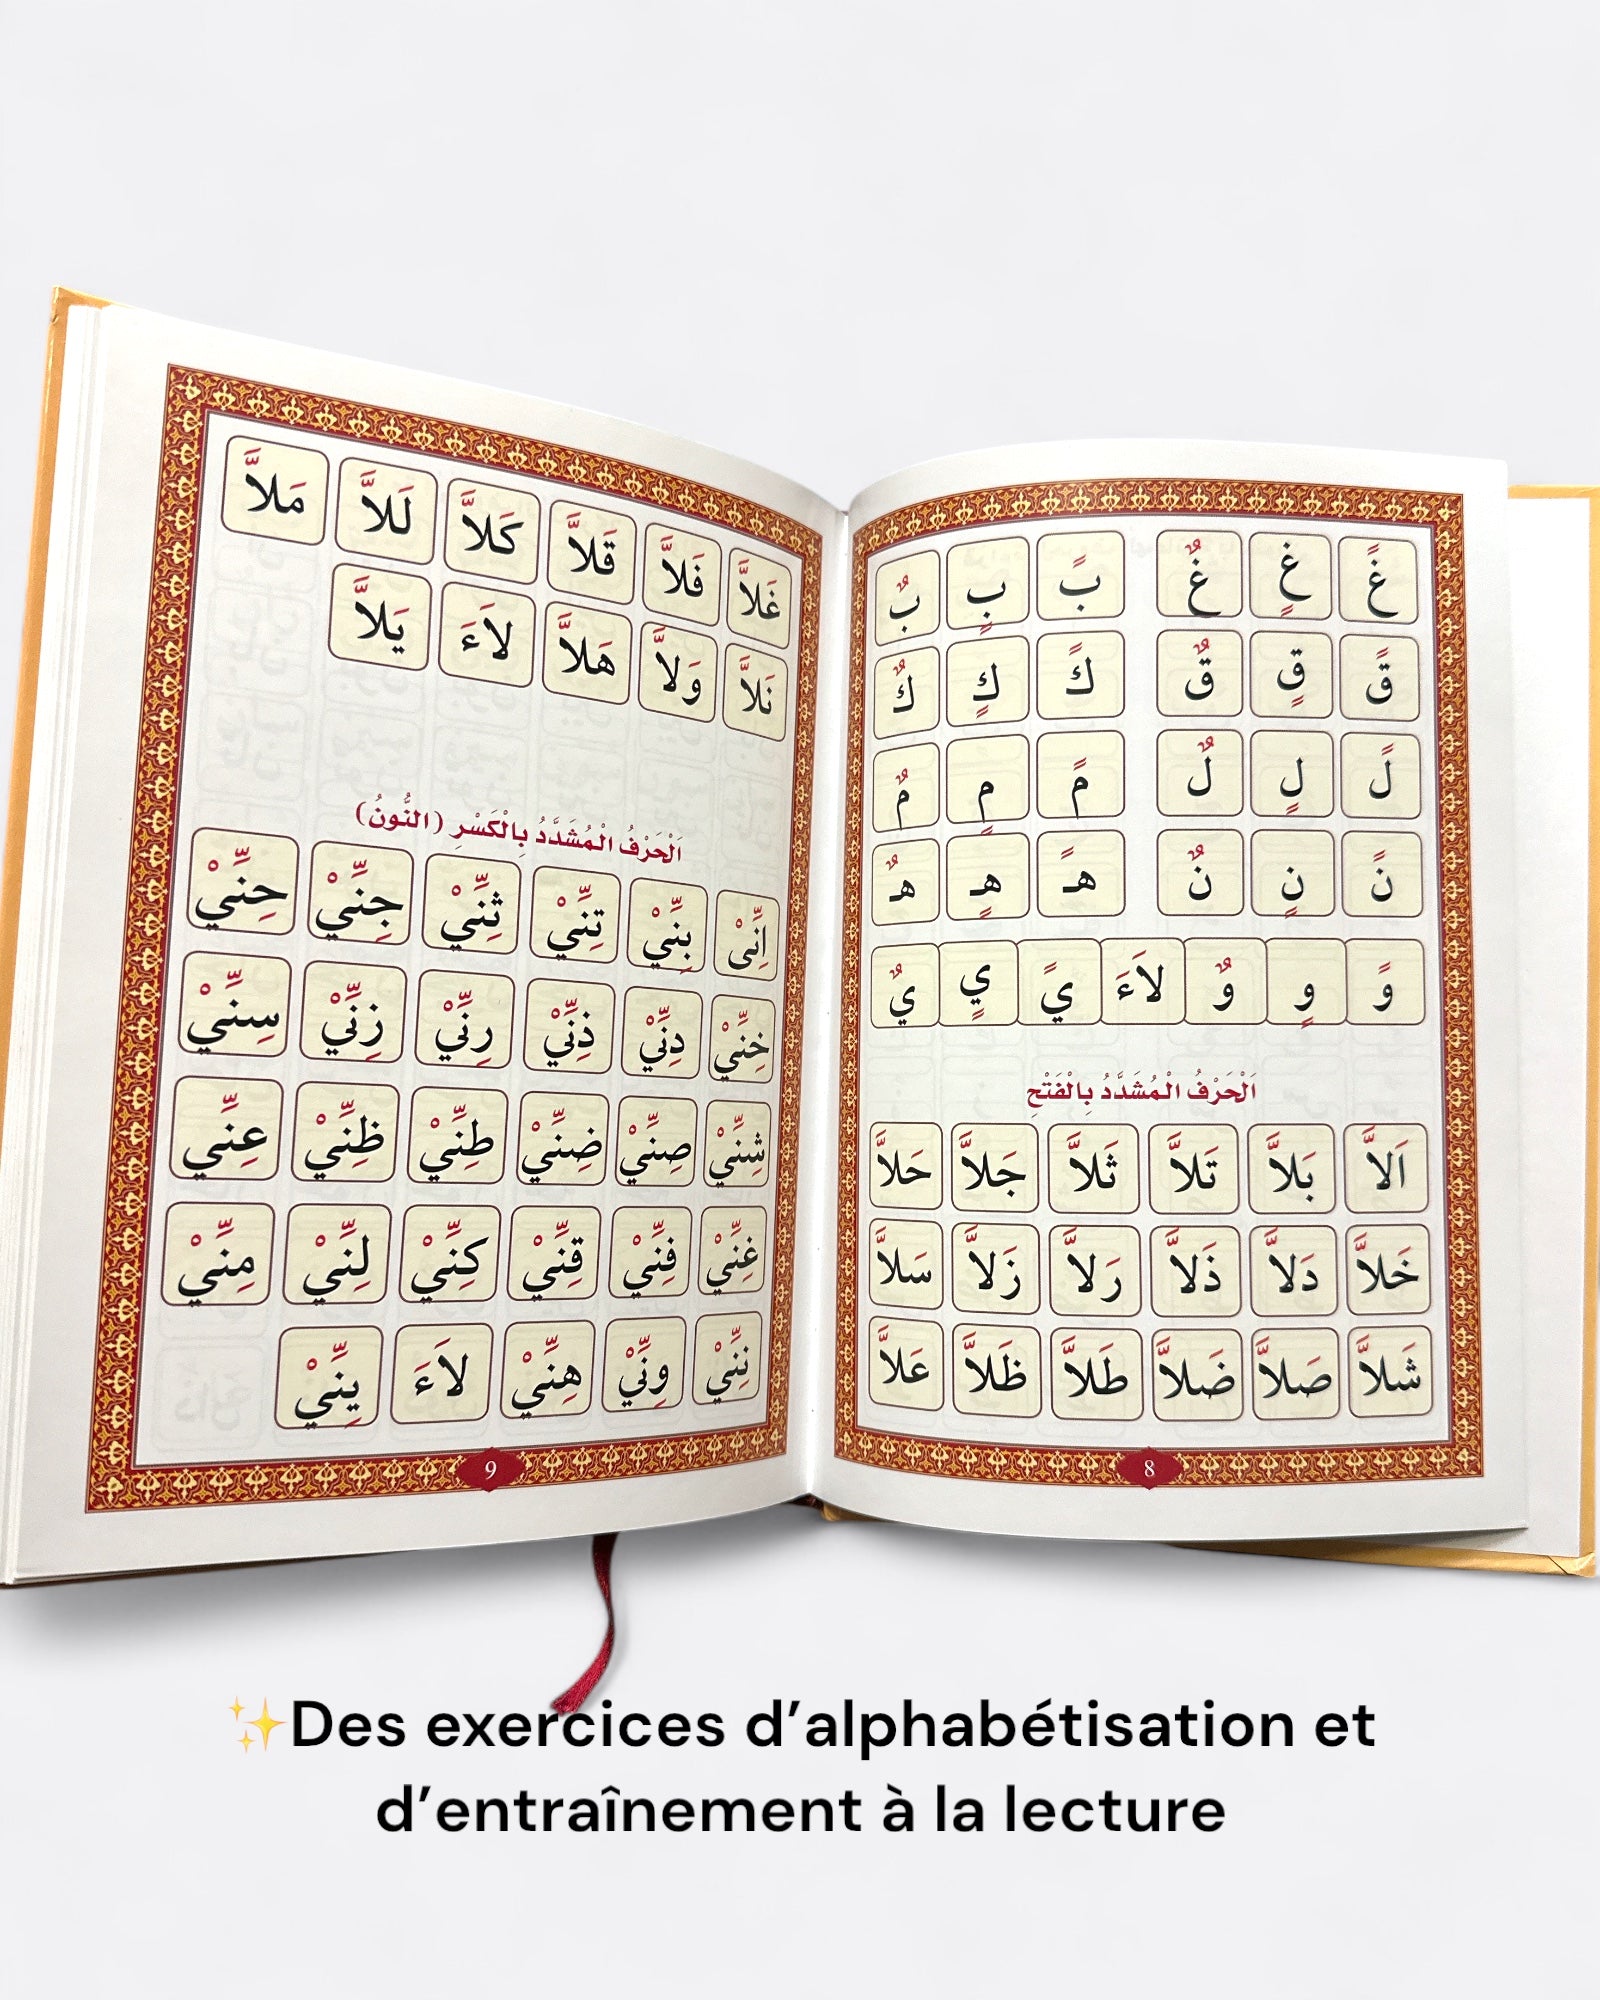 غً غٍ غٌ بً بٍ بٌ
قً قٍ قٌ كً كٍ كٌ
لً لٍ لٌ مً مٍ مٌ
نً نٍ نٌ هـً هـٍ هـٌ
وً وٍ وٌ لاَءَ يً يٍ يٌ
اَلْحَرْفُ الْمُشَدَّدُ بِالْفَتْحِ
اَلاَّ بَلاَّ تَلاَّ ثَلاَّ جَلاَّ حَلاَّ
خَلاَّ دَلاَّ ذَلاَّ رَلاَّ زَلاَّ سَلاَّ
شَلاَّ صَلاَّ ضَلاَّ طَلاَّ ظَلاَّ عَلاَّ
8
غَلاَّ فَلاَّ قَلاَّ كَلاَّ لَلاَّ مَلاَّ
نَلاَّ وَلاَّ هَلاَّ لاَءَ يَلاَّ
اَلْحَرْفُ الْمُشَدَّدُ بِالْكَسْرِ (النُّونُ)
اِنِّىْ بِنِّيْ تِنِّيْ ثِنِّيْ جِنِّيْ حِنِّيْ
خِنِّيْ دِنِّيْ ذِنِّيْ رِنِّيْ زِنِّيْ سِنِّيْ
شِنِّيْ صِنِّيْ ضِنِّيْ طِنِّيْ ظِنِّيْ عِنِّي
غِنِّيْ فِنِّيْ قِنِّيْ كِنِّيْ لِنِّيْ مِنِّيْ
نِنِّيْ وِنِّيْ هِنِّيْ لاَءَ يِنِّيْ
9
✨Des exercices d’alphabétisation et
d’entraînement à la lecture